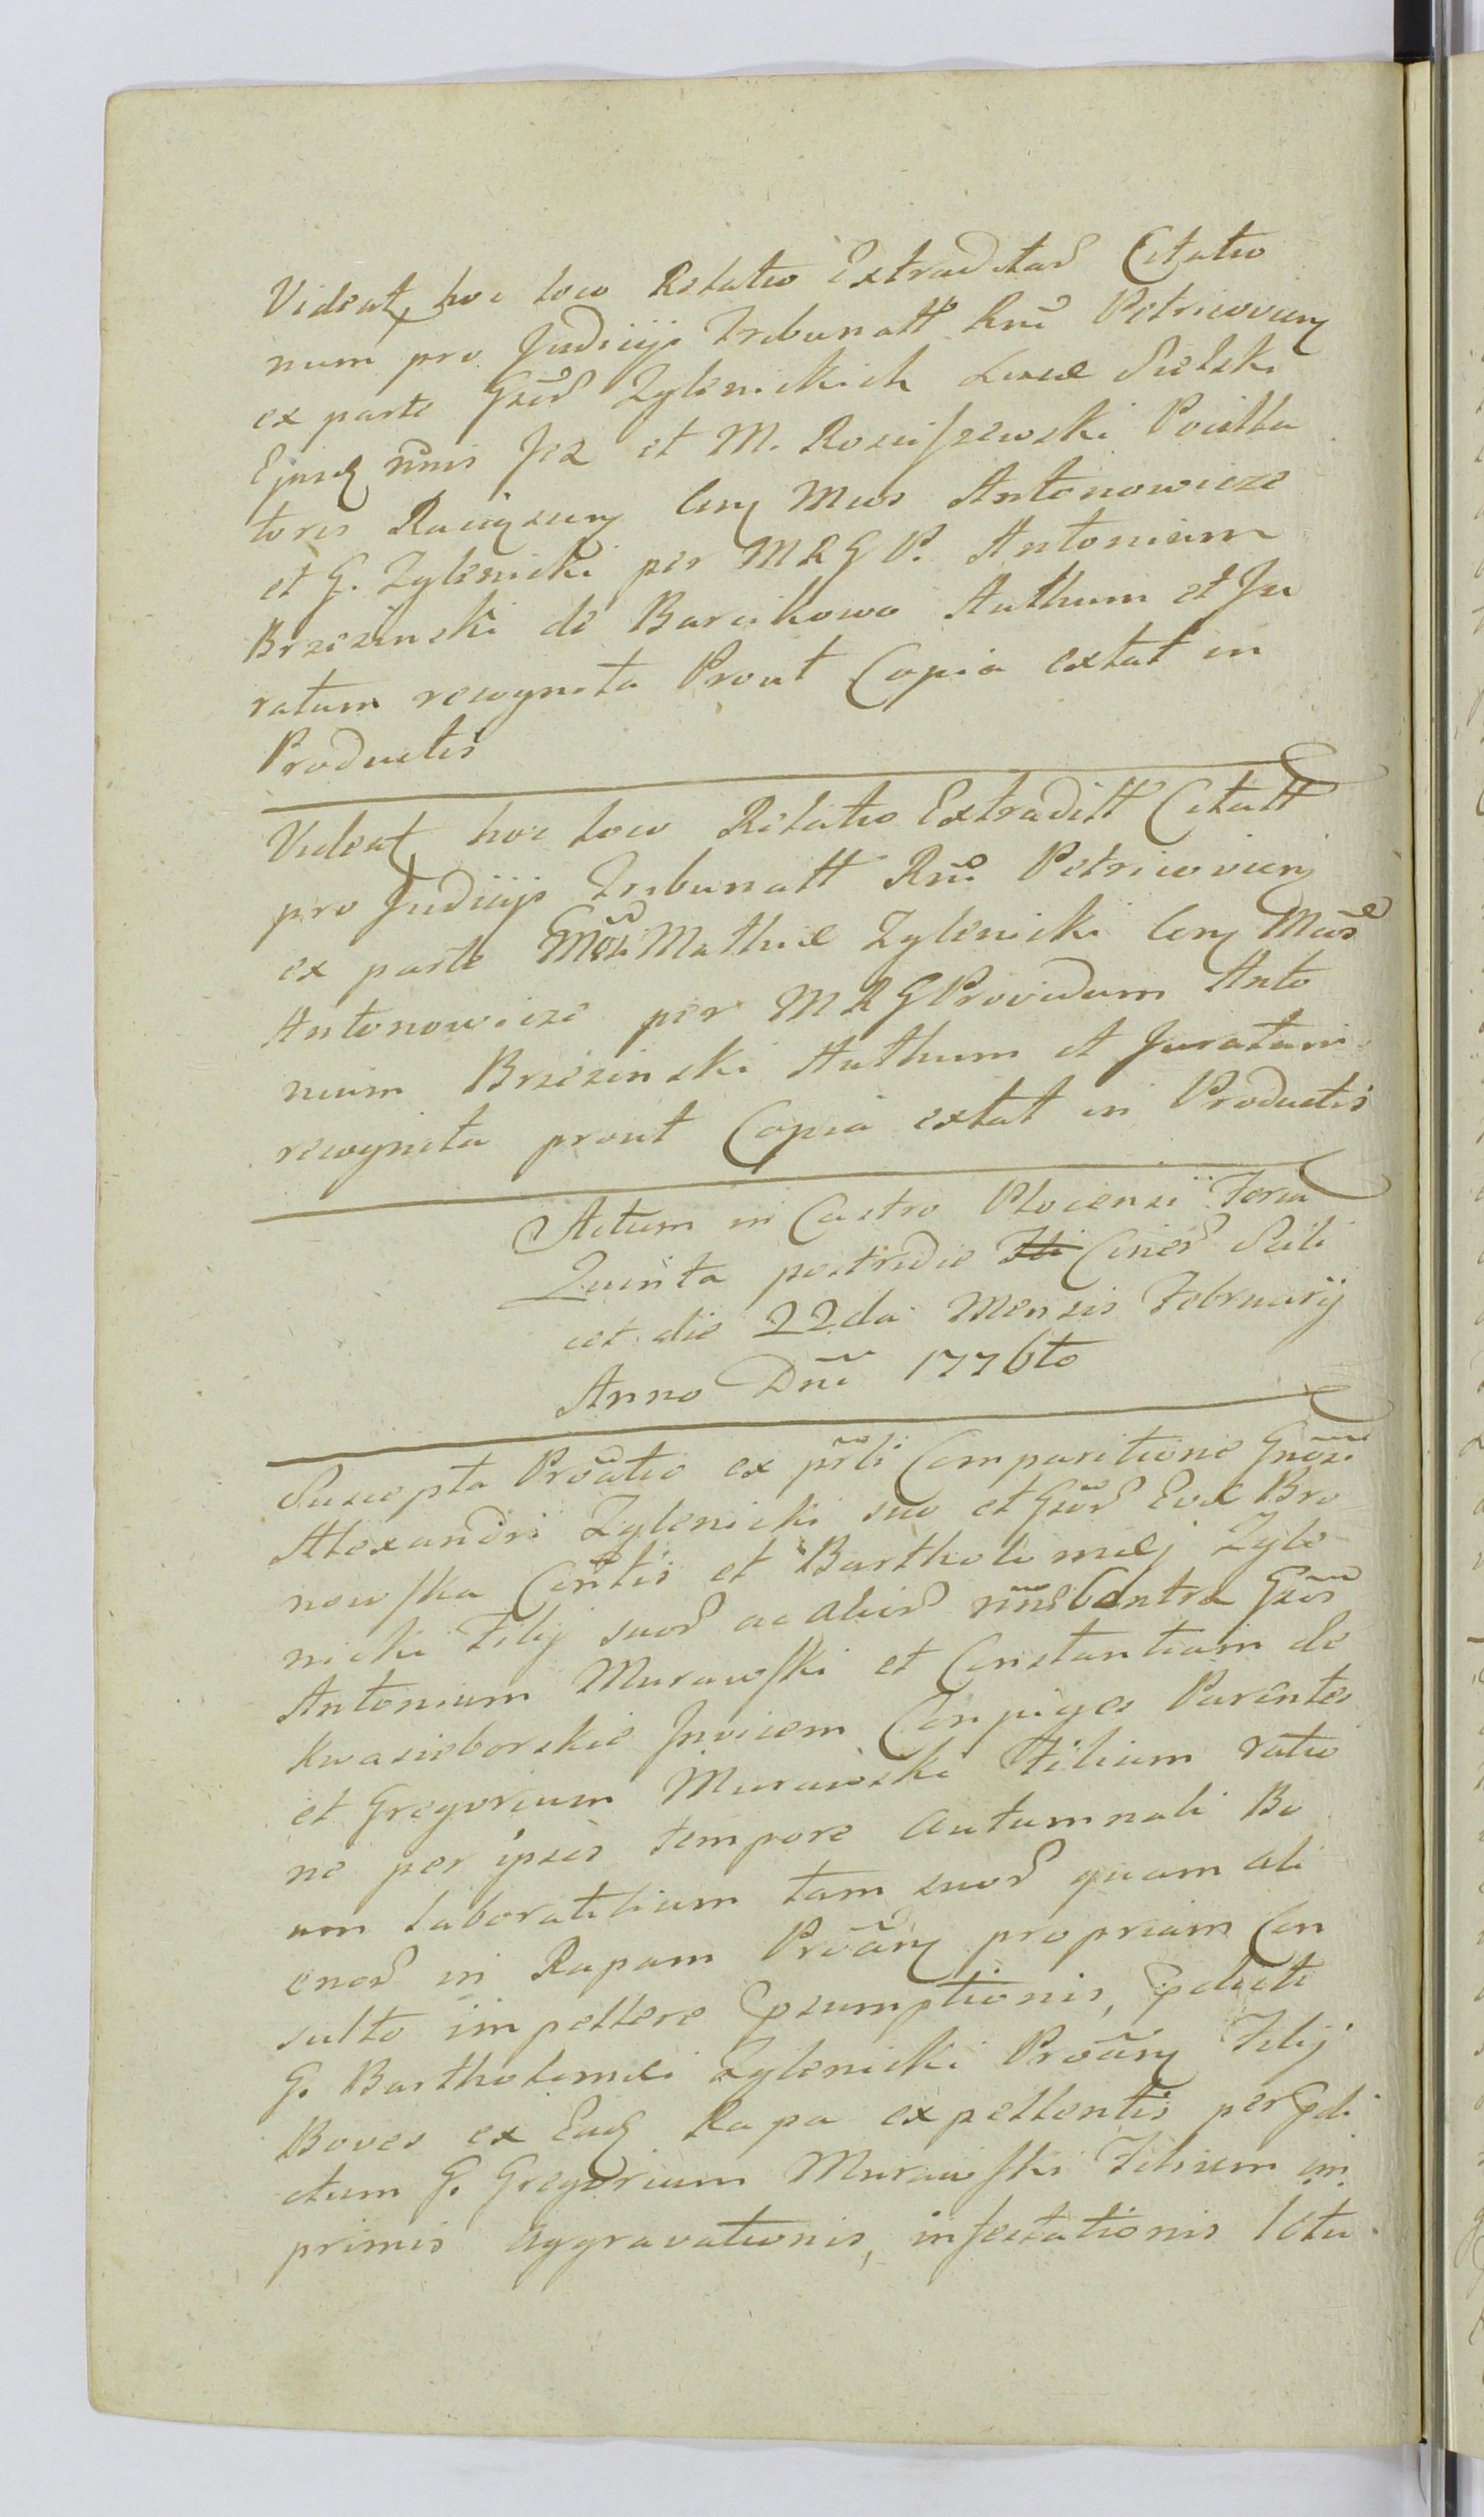 Videat hoc loco Relatio Extraditar Citatio
num pro Judicijs Tribunall Rni Petricovien
ex parte Gsor Zglenickich Lucæ Sielski
Ejusq nnis Jez et M. Rosciszewski Pocilla
toris Raciązien Cen Mcos Antonowicze
et G. Zglenicki per M R G P. Antonium
Brzezinski de Barcikowo Authum et Ju
ratum recognita Prout Copia extat in
Productis
Videat hoc loco Relatio Extraditt Citatt
pro Judicijs Tribunall Rni Petricovien
ex parte Mathiæ Zglenicki Cen Mcos
Antonowicze per M R G Providum Anto
nium Brzezinski Authum et Juratum
recognita prout Copia extat in Productis
Actum in Castro Plocensi Feria
Quinta postridie Ciner Scili
cet die 22da Mensis Februarij
Anno Dni 1776to
Suscepta Proatio ex prli Comparitione Gnosi
Alexandri Zglenicki suo et Gsor Evæ Bro
nowska Contis et Bartholomæj Zgle
nicki Filij suor ac alior nne Contra Gsos
Antonium Murawski et Constantiam de
Kwasieborskie Invicem Conjuges Parentes
et Gregorium Murawski Filium ratio
ne per ipsos tempore autumnali Bo
um laboratilium tam suor quam ali
enor in Rapam Proan propriam Con
sulto impellere Psumptionis, Pdicti
G. Bartholomæi Zglenicki Proan Filij
Boves ex Eadq Rapa expellentis per Pdi
ctum G. Gregorium Murawski Filium im
primis aggravationis, infestationis Ictu